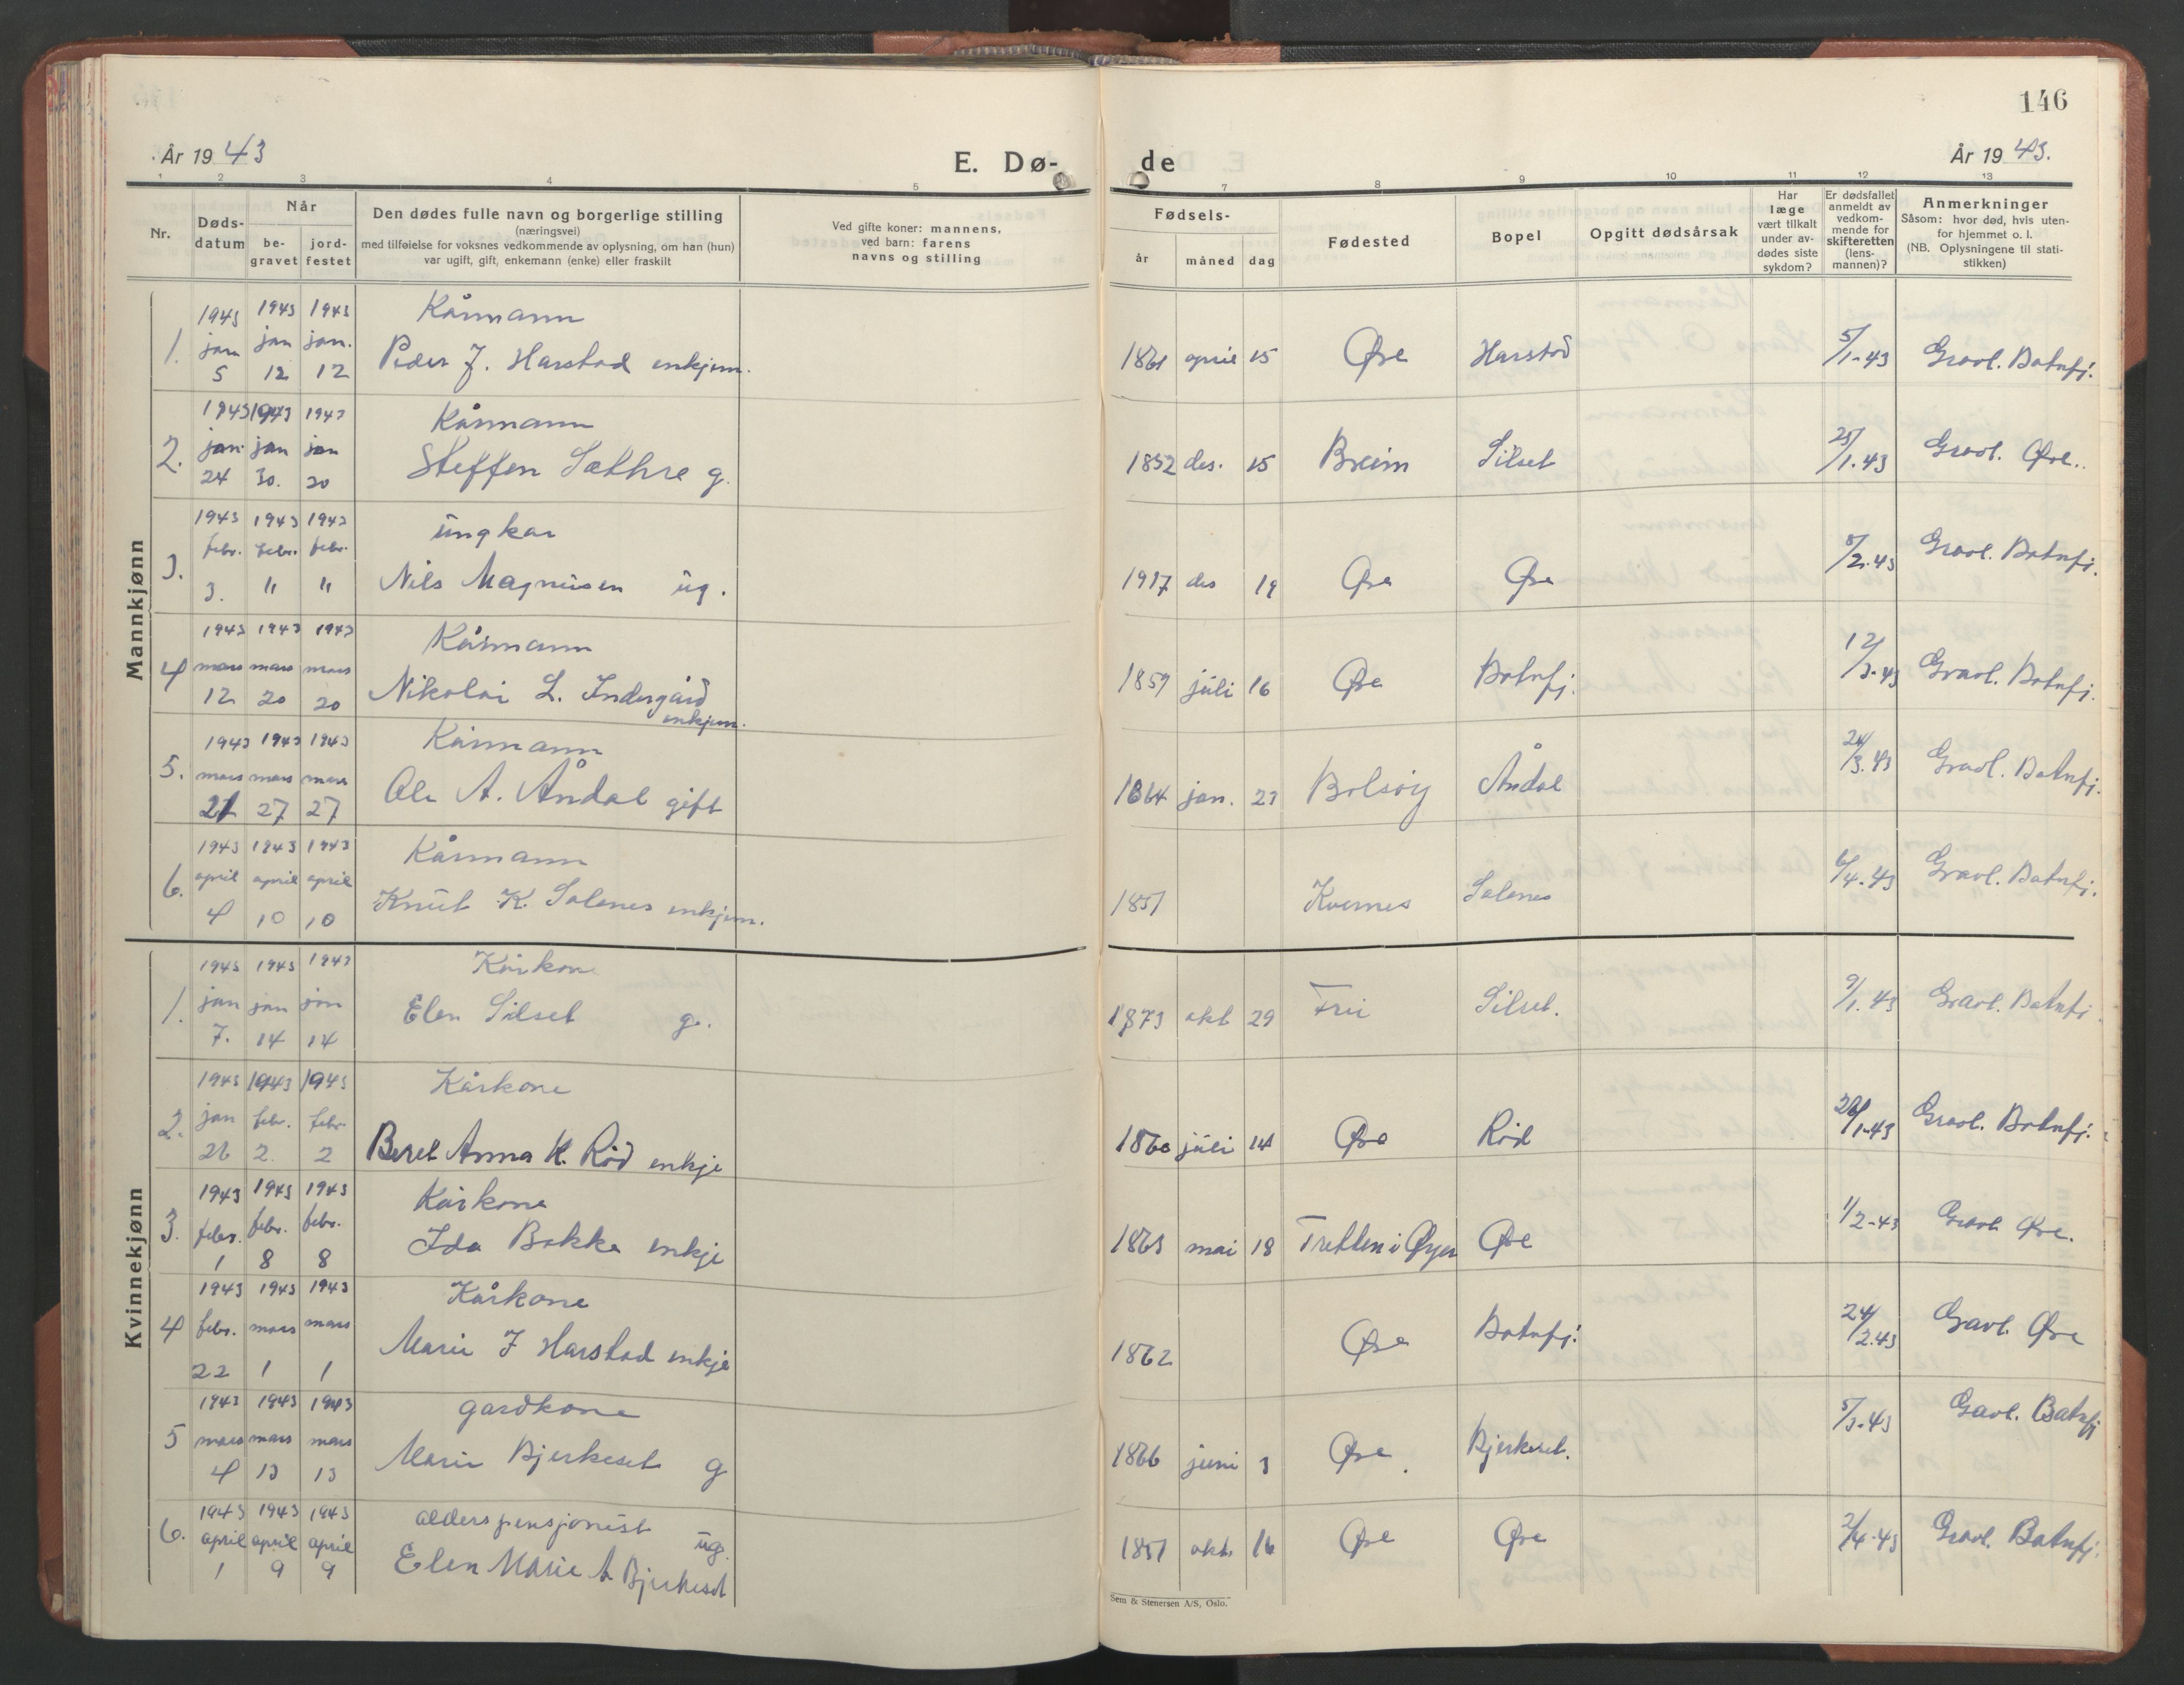 146
År 1943
E. Dø-
de
År 1943.
1 2 3 4 5 7 8 9 10 11 12 13
Nr.
Døds-
datum
Når
be-
gravet
jord-
festet
Den dødes fulle navn og borgerlige stilling
(næringsvei)
med tilføielse for voksnes vedkommende av oplysning, om han (hun)
var ugift, gift, enkemann (enke) eller fraskilt
Ved gifte koner: mannens,
ved barn: farens
navns og stilling
Fødsels-
år måned dag
Fødested
Bopel
Opgitt dødsårsak
Har
læge
vært tilkalt
under av-
dødes siste
sykdom?
Er dødsfallet
anmeldt av
vedkom-
mende for
skifteretten
(lens-
mannen)?
Anmerkninger
Såsom: hvor død, hvis uten-
for hjemmet o. l.
(NB. Oplysningene til stati-
stikken)
Mannkjønn
1943 1943 1943 Kårmann
1. jan jan jan. Peder J. Harstad enkjem. 1861 april 15 Øre Harstad 5/1-43 Gravl. Batnfj.
5 12 12
1943 1943 1943 Kårmann
2. jan. jan jan Steffen Sæthre g. 1852 des. 15 Breim Silset 25/1.43 Gravl. Øre.
24 30. 30
1943 1943 1943 ungkar
3. febr. febr. febr. Nils Magnusen ug. 1917 des 19 Øre Øre 5/2.43 Gravl. Batnfj.
3. " "
1943 1943 1943 Kårmann
4 mars mars mars Nikolai L. Indergård 1859 juli 16 Øre Batnfj. 12/3-43 Gravl. Batnfj.
12 20 20 enkjem.
1943 1943 1943 Kårmann
5. mars mars mars Ole A. Åndal gift 1864 jan. 23 Bolsøy Åndal 24/3.43 Gravl. Batnfj.
21 27 27
1943 1943 1943 Kårmann
6. april april april Knut K. Solenes enkjem. 1851 Kvernes Solenes 6/4-43 Gravl. Batnfj.
4 10 10
Kvinnekjønn
1943 1943 1943 Kårkone
1. jan jan jan Elen Silset g. 1873 okt 29 Frei Silset. 9/1.43 Gravl. Batnfj.
7. 14 14
1943 1943 1943 Kårkone
2. jan febr. febr. Beret Anna K. Rød enkje 1860 juli 14 Øre Rød 28/1-43 Gravl. Batnfj.
26 2. 2
1943 1943 1943 Kårkone
3. febr. febr. febr. Ida Bakke enkje 1863 mai 18 Tretten i Øyer Øre 1/2-43 Gravl. Øre.
1 8 8
1943 1943 1943 Kårkone
4 febr. mars mars Marie J Harstad enkje 1862 Øre Batnfj. 24/2.43 Gravl. Øre
22 1 1
1943 1943 1943 gardkone
5 mars mars mars Marie Bjerkeset g 1866 juni 3 Øre. Bjerkeset. 5/3-43 Gravl. Batnfj
4 13 13
1943 1943 1943 alderspensjonist
6. april april april ug. 1851 okt. 16 Øre Øre 2/4-43 Gravl. Batnfj.
1 9 9 Elen Marie A Bjerkeset
Sem & Stenersen A/S, Oslo.